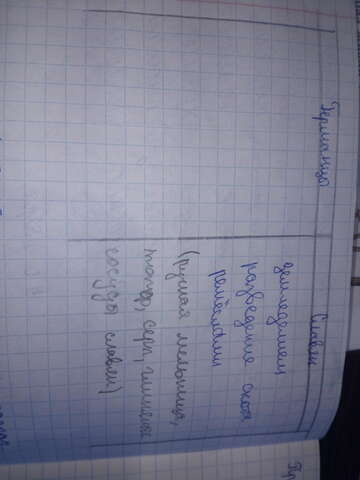 Германцы
Славян
земледелием
разведение скота
ремёслами
(Ручная мельница,
топор, серп, глиняные
сосуды славян)